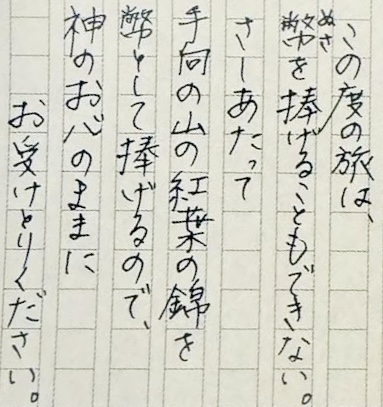 この度の旅は、
幣ぬさを捧げることもできない。
さしあたって
手向の山の紅葉の錦を
幣として捧げるので、
神のお心のままに
お受けとりください。